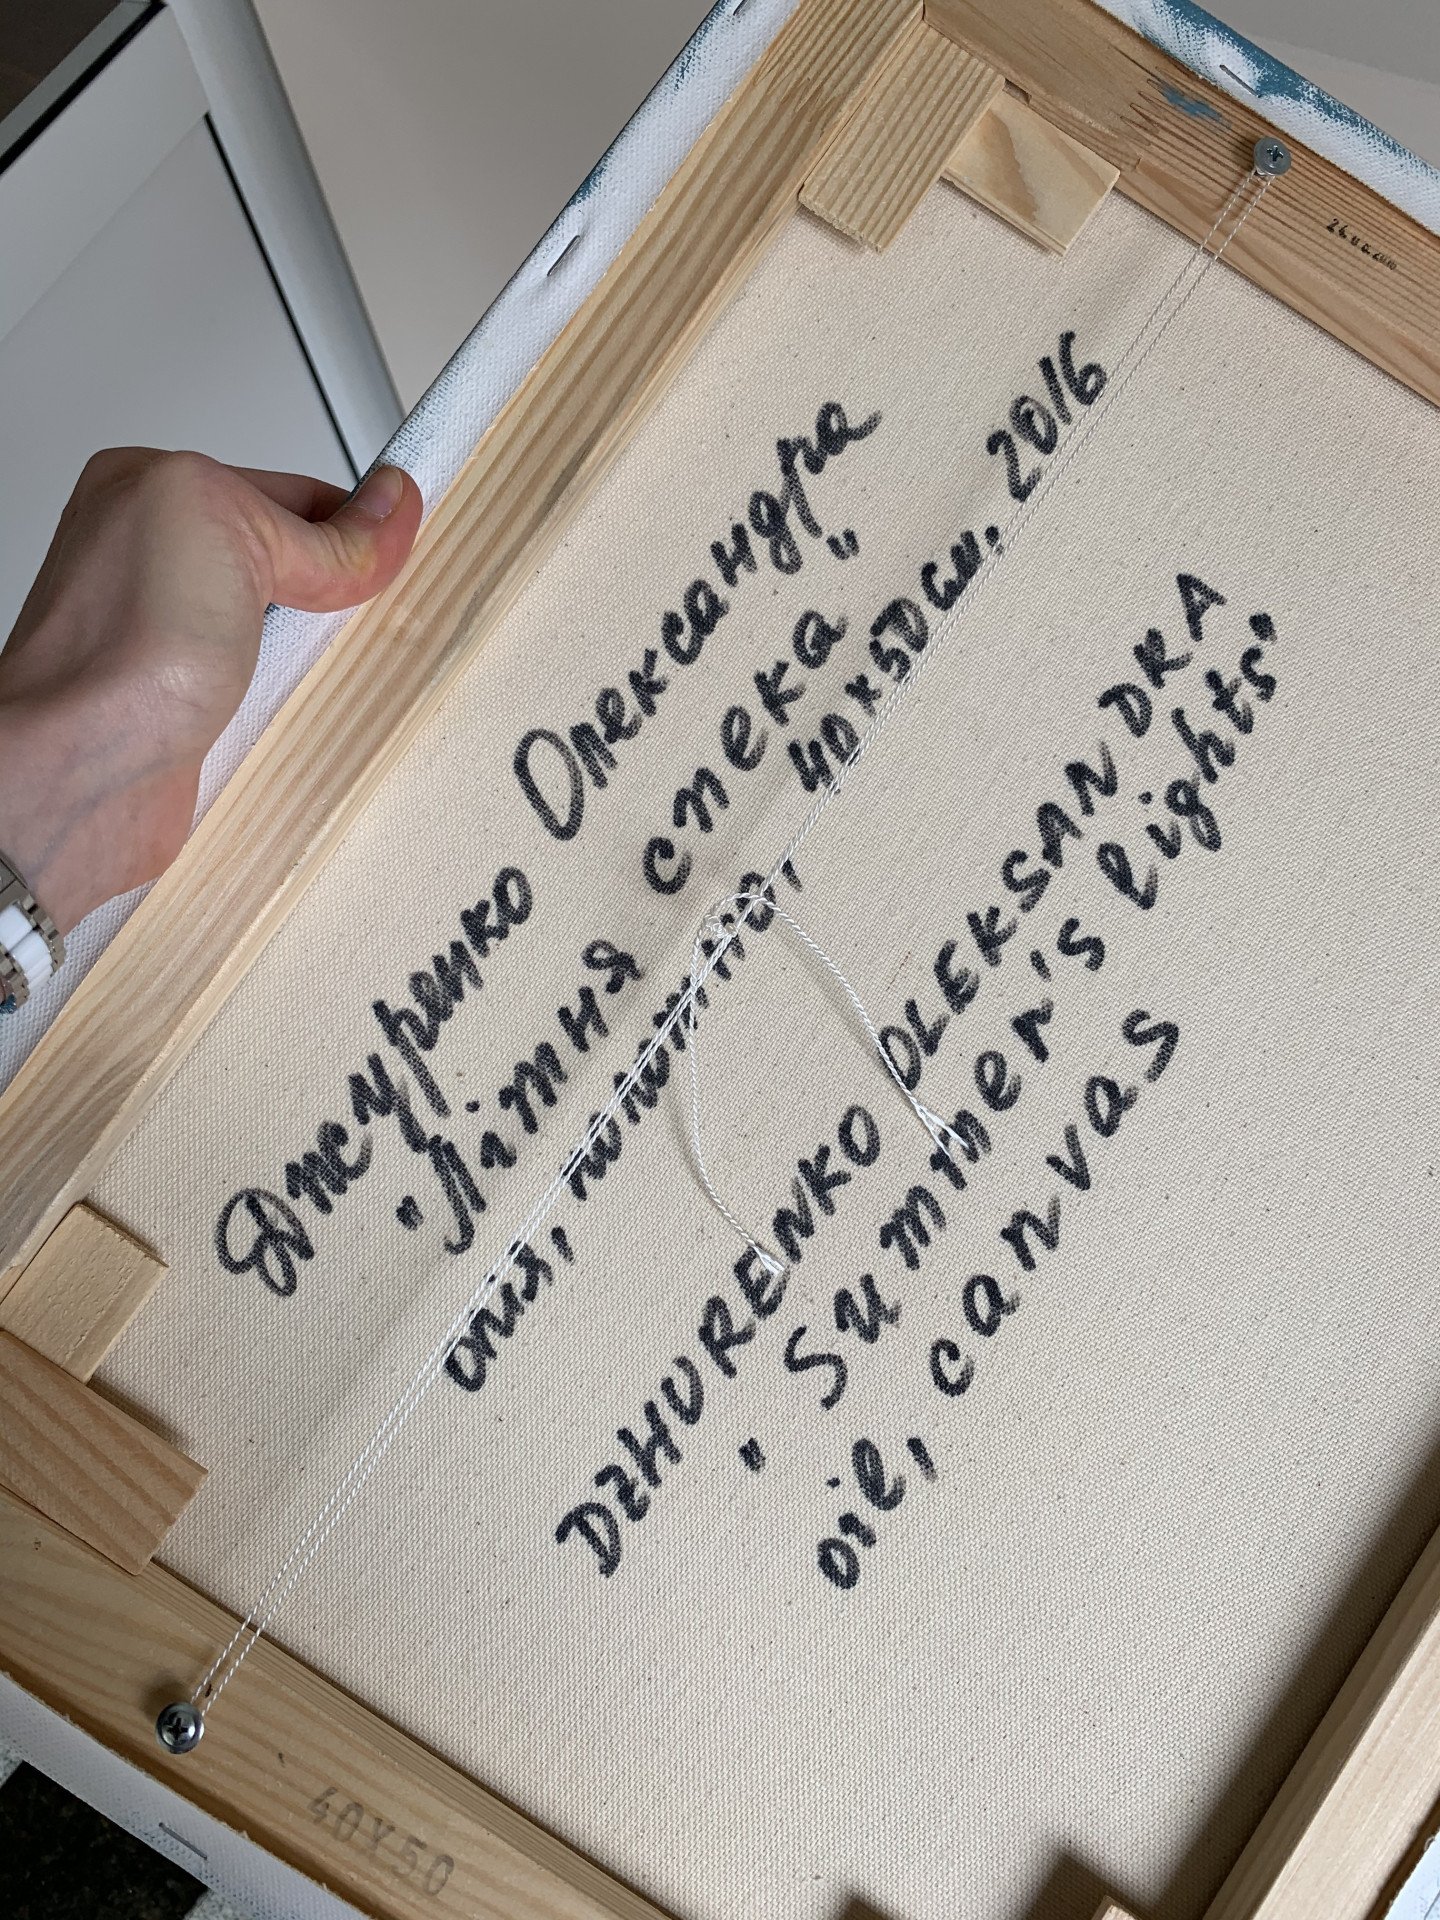 Джуренко Олександра
"Літня спека"
олія, полотно, 40x50 см, 2016
DZHURENKO OLEKSANDRA
"Summer's lights"
oil, canvas
40X50